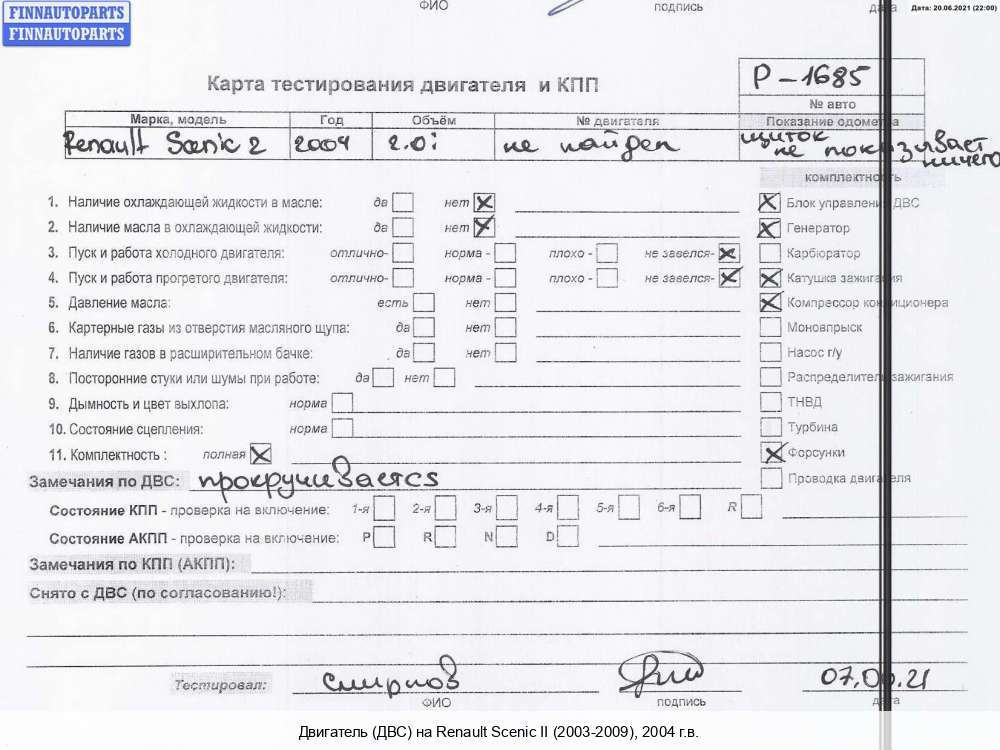 FINNAUTOPARTS
FINNAUTOPARTS
ФИО подпись дата Дата: 20.06.2021 (22:00)
Карта тестирования двигателя и КПП
P-1685
№ авто
Марка, модель Год Объём № двигателя Показание одометра
Renault Scenic 2 2004 2.0i не найден щиток не показывает ничего
комплектность
1. Наличие охлаждающей жидкости в масле: да нет Блок управления ДВС
2. Наличие масла в охлаждающей жидкости: да нет Генератор
3. Пуск и работа холодного двигателя: отлично- норма - плохо - не завелся- Карбюратор
4. Пуск и работа прогретого двигателя: отлично- норма - плохо - не завелся- Катушка зажигания
5. Давление масла: есть нет Компрессор кондиционера
6. Картерные газы из отверстия масляного щупа: да нет Моновпрыск
7. Наличие газов в расширительном бачке: да нет Насос г/у
8. Посторонние стуки или шумы при работе: да нет Распределитель зажигания
9. Дымность и цвет выхлопа: норма ТНВД
10. Состояние сцепления: норма Турбина
11. Комплектность : полная Форсунки
Замечания по ДВС: прокручивается Проводка двигателя
Состояние КПП - проверка на включение: 1-я 2-я 3-я 4-я 5-я 6-я R
Состояние АКПП - проверка на включение: P R N D
Замечания по КПП (АКПП):
Снято с ДВС (по согласованию!):
Тестировал: Смирнов 07.06.21
ФИО подпись дата
Двигатель (ДВС) на Renault Scenic II (2003-2009), 2004 г.в.